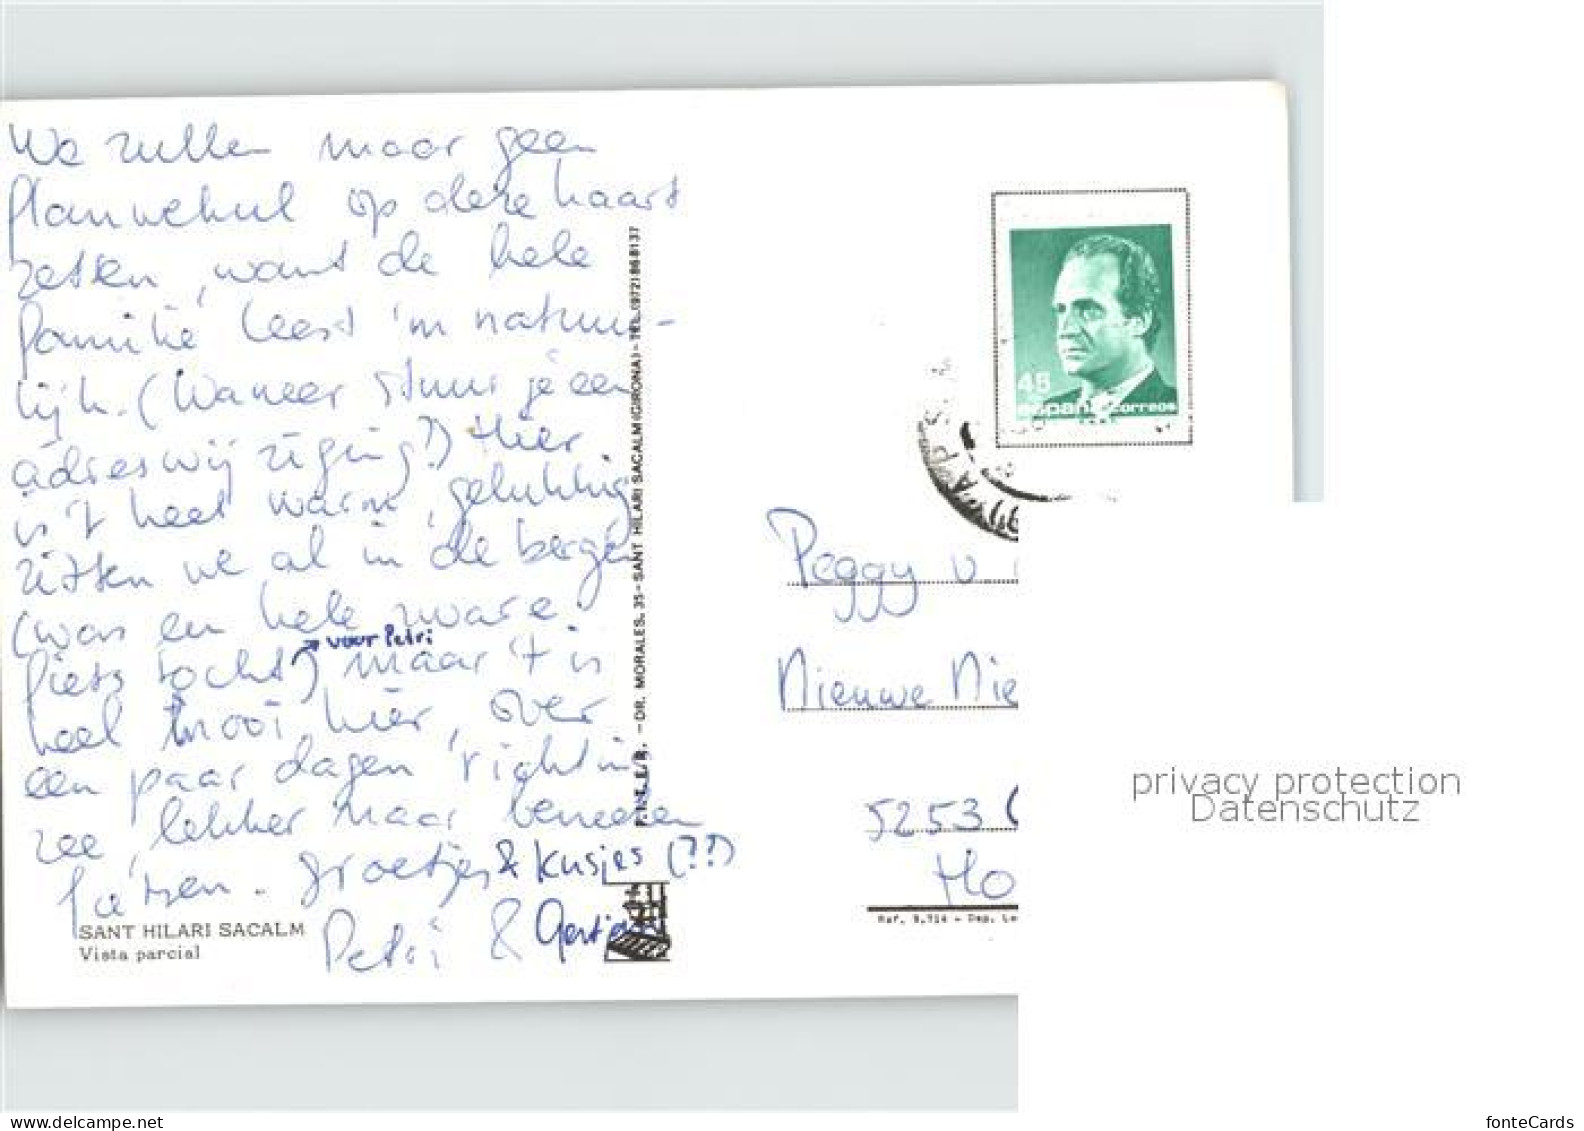 We zullen maar geen
flauwekul op deze kaart
zetten, want de hele
familie leest 'm natuur-
lijk. (Waneer stuur je een
adreswijziging?) Hier
is 't heel warm, gelukkig
zitten we al in de bergen
(was en hele zware
voor Petri
fiets tocht) maar 't is
heel mooi hier, over
een paar dagen richting
zee, lekker naar beneden
fietsen. groetjes & kusjes (??)
Petri & Gertjan
SANT HILARI SACALM
Vista parcial
- DR. MORALES, 35 - SANT HILARI SACALM (GIRONA) - TEL. (972) 868137
48
españa correos
Peggy v.
Nieuwe Nie
5253
Ho
Ref. 9.714 - Dep. Le
privacy protection
Datenschutz
www.delcampe.net
fonteCards